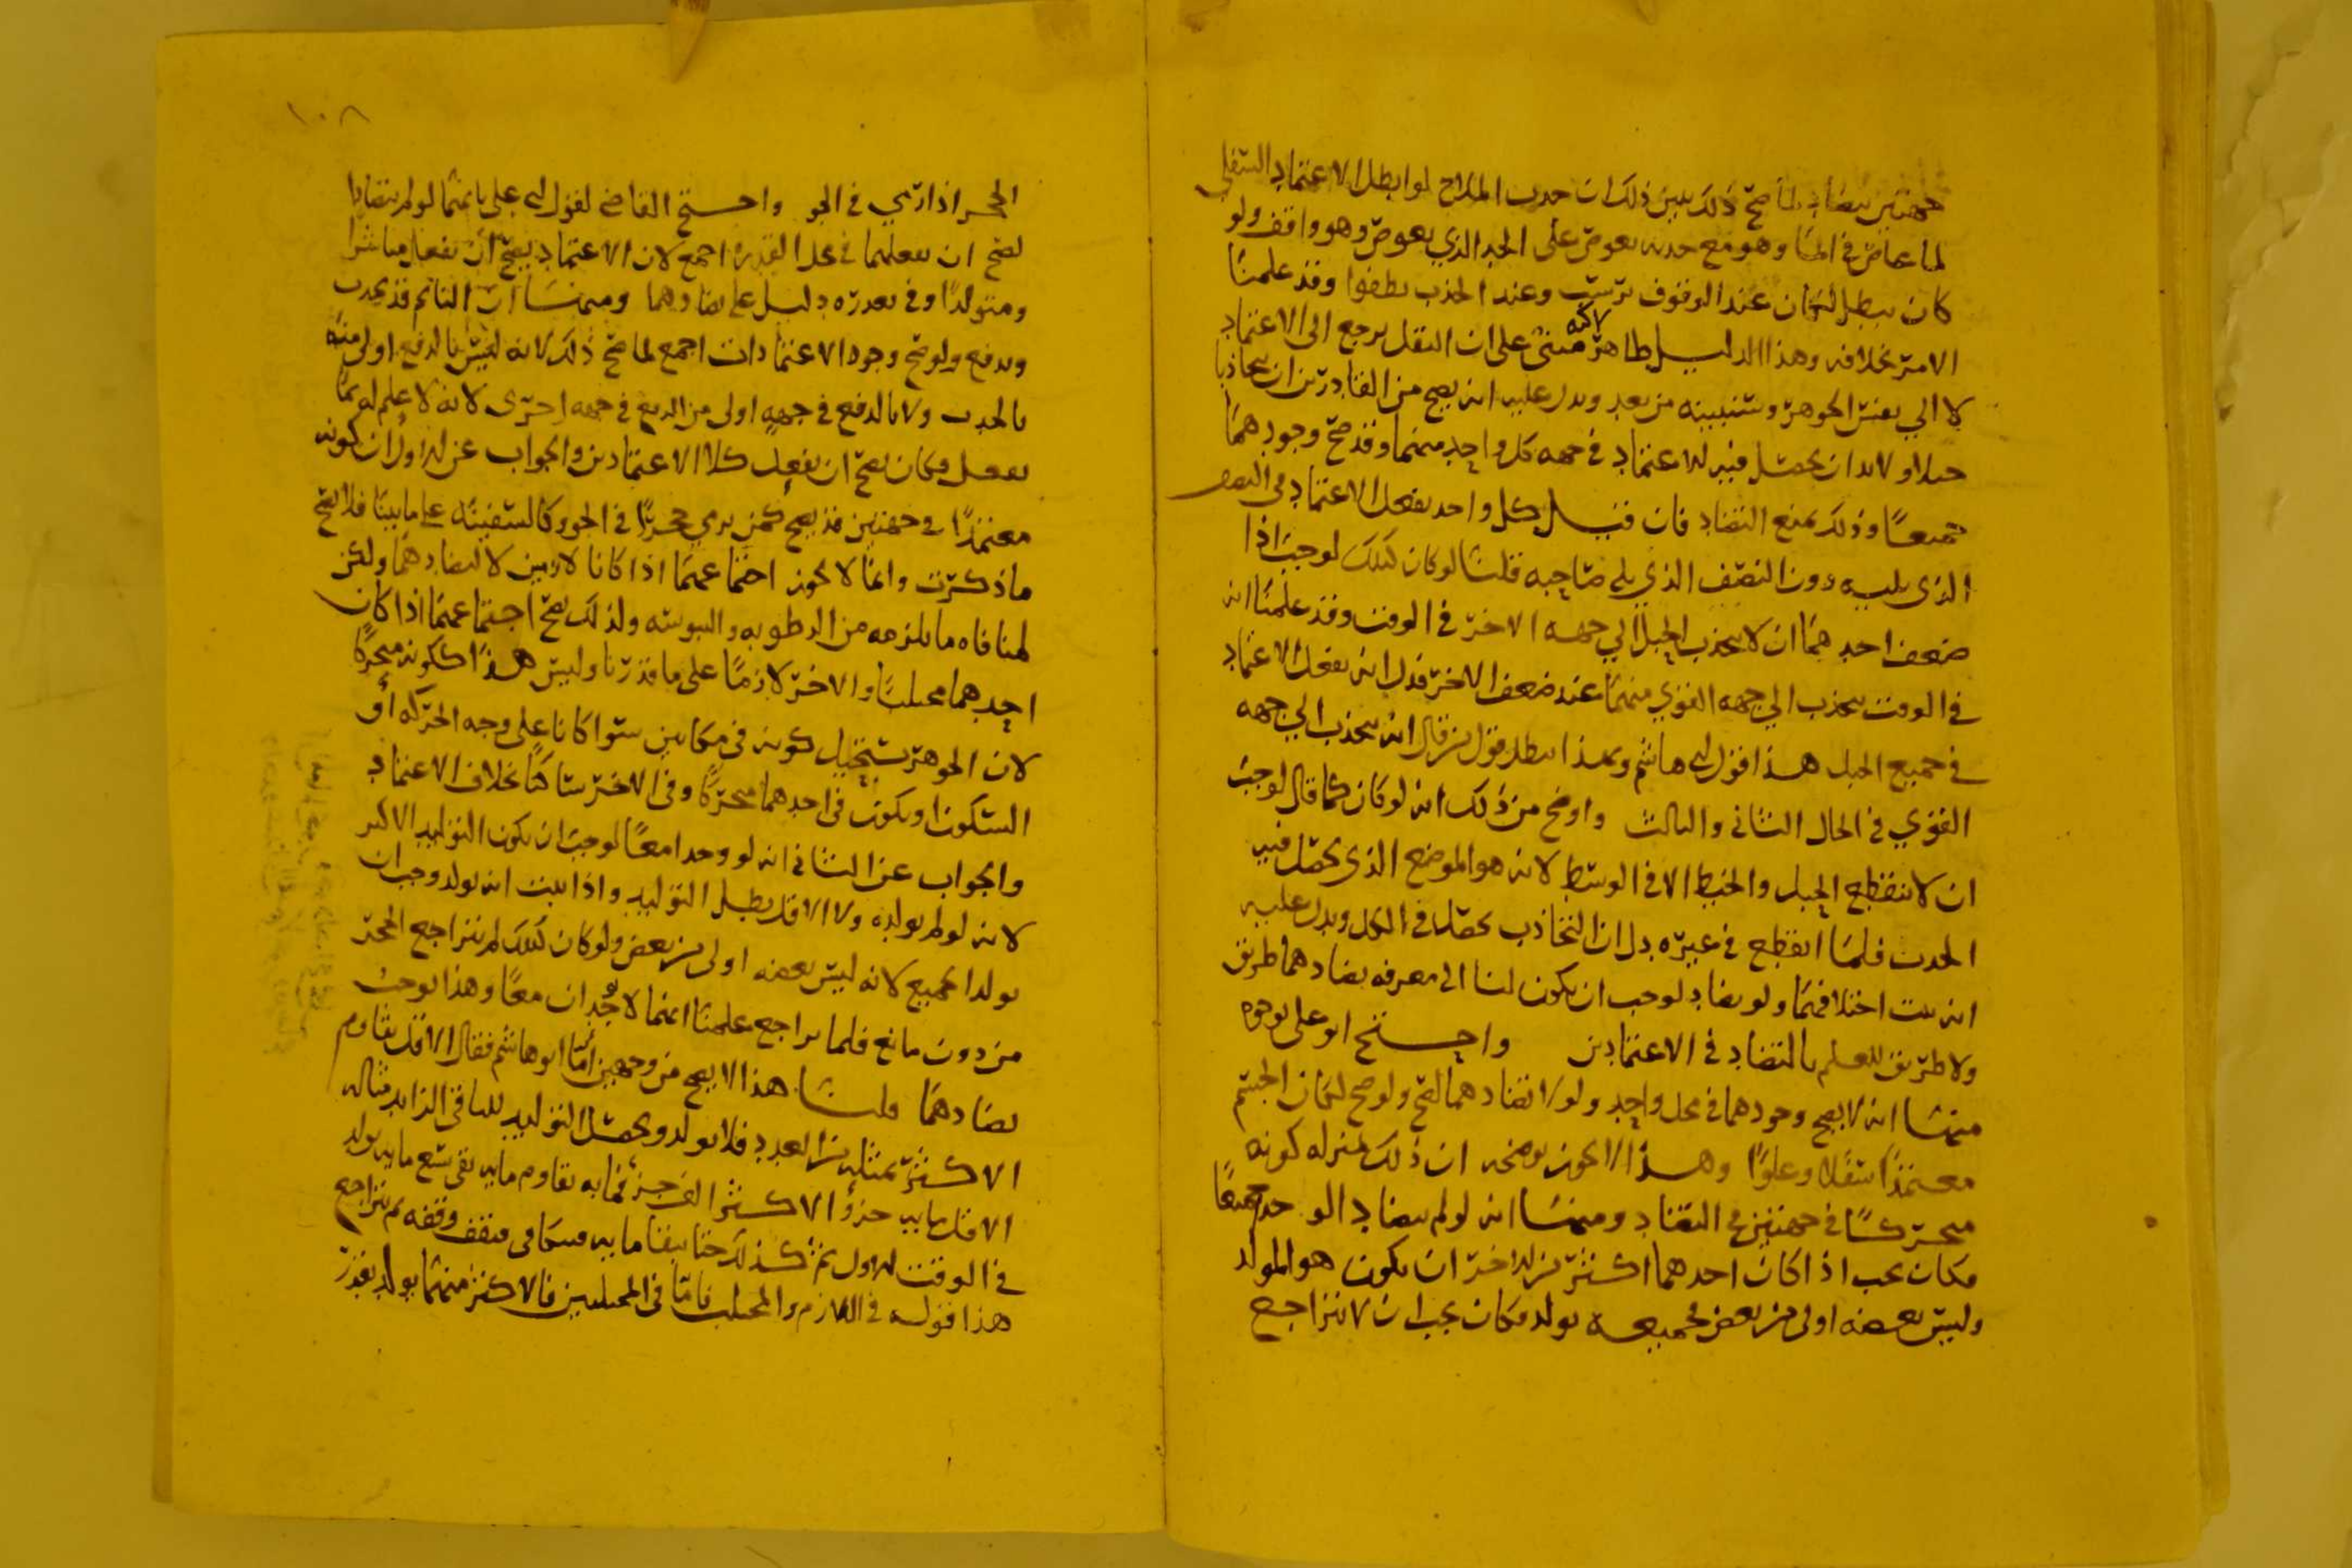 جهتين يتضاد لما صح ذلك يبين ذلك ان جذب الملاح لو ابطل الاعتماد السفلي
لما غاص في الماء وهو مع جذبه يغوص على الحد الذي يغوص وهو واقف ولو
كان يبطل لكان عند الوقوف يرسب وعند الجذب يطفوا وقد علمنا
الامر بخلافه وهذا الدليل ظاهر لكنه مبني على ان الثقل يرجع الى الاعتماد
لا الى نفس الجوهر وسنبينه من بعد ويدل عليه انه يصح من القادرين ان يتجاذبا
حبلا ولابد ان يحصل فيه الاعتماد في جهه كل واحد منهما وقد صح وجودهما
جميعا وذلك يمنع التضاد فان قيل كل واحد يفعل الاعتماد في النصف
الذي يليه دون النصف الذي يلي صاحبه قلنا لو كان كذلك لوجب اذا
ضعف احدهما ان لا ينجذب الحبل الى جهه الاخر في الوقت وقد علمنا انه
في الوقت ينجذب الى جهه القوي منهما عند ضعف الاخر فدل انه يفعل الاعتماد
في جميع الحبل هذا قول ابي هاشم وبهذا ابطل قول من قال انه ينجذب الى جهه
القوي في الحال الثاني والثالث واوضح من ذلك انه لو كان كما قال لوجب
ان لا ينقطع الحبل والخيط الا في الوسط لانه هو الموضع الذي يحصل فيه
الجذب فلما انقطع في غيره دل ان التجاذب يحصل في الكل ويدل عليه
انه يثبت اختلافهما ولو تضاد لوجب ان يكون لنا الى معرفه تضادهما طريق
ولا طريق للعلم بالتضاد في الاعتمادين واحتج ابو علي بوجوه
منها انه لا يصح وجودهما في محل واحد ولولا تضادهما لصح ولو صح لكان الجسم
معتمدا سفلا وعلوا وهذا لا يجوز يوضحه ان ذلك بمنزله كونه
متحركا في جهتين في التضاد ومنها انه لو لم يتضاد الو جدا جميعا
فكان يجب اذا كان احدهما اكثر من الاخر ان يكون هو المولد
وليس بعضه اولى من بعض فجميعه يولد فكان يجب ان لا يتراجع
١٠٨
الحجر اذا رمي في الجو واحتج القاضي لقول ابي علي بانهما لو لم يتضادا
لصح ان يفعلهما في محل القدره اجمع لان الاعتماد يصح ان يفعل مباشرا
ومتولدا وفي تعذره دليل على تضادهما ومنها ان النائم قد يجذب
ويدفع ولو صح وجود الاعتمادات اجمع لما صح ذلك لانه ليس بالدفع اولى منه
بالجذب ولا بالدفع في جهه اولى من الدفع في جهه اخرى لانه لا علم له بما
يفعل فكان يصح ان يفعل كلا الاعتمادين والجواب عن الاول ان كونه
معتمدا في جهتين قد يصح كمن يرمي حجرا في الجو وكالسفينه على ما بينا فلا يصح
ما ذكرت وانما لا يجوز اجتماعهما اذا كانا لازمين لا لتضادهما ولكن
لمنافاه ما يلزمه من الرطوبه واليبوسه ولذلك يصح اجتماعهما اذا كان
احدهما مجتلبا والاخر لازما على ما قدرنا وليس هذا ككونه متحركا
لان الجوهر يستحيل كونه في مكانين سوا كانا على وجه الحركه او
السكون او يكون في احدهما متحركا وفي الاخر ساكنا بخلاف الاعتماد
والجواب عن الثاني انه لو وجدا معا لوجب ان يكون التوليد للاكثر
لانه لو لم يولده ولا الاقل بطل التوليد واذا ثبت انه يولد وجب ان
يولد الجميع لانه ليس بعضه اولى من بعض ولو كان كذلك لم يتراجع الحجر
من دون مانع فلما تراجع علمنا انهما لا يوجدان معا وهذا يوجب
تضادهما قلنا هذا لا يصح من وجهين اما ابو هاشم فقال الاقل يقاوم
الاكثر بمثله من العدد فلا يولد ويحصل التوليد للباقي الزايد مثاله
الاقل مايه جزؤ الاكثر الف جزء فمايه تقاوم مايه تبقى تسع مايه يولد
في الوقت الاول ثم كذلك حتى يبقى مايه فيتكافى فتقف وقفه ثم يتراجع
هذا قوله في اللازم والمجتلب فاما في المجتلبين فالاكثر منهما يولد بقدر